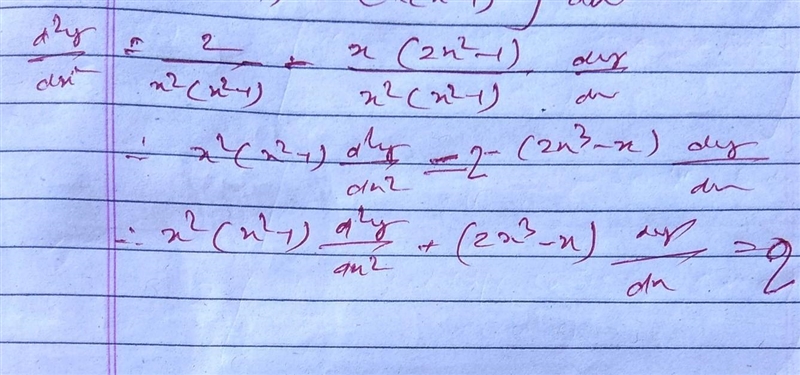 d²y/dx² = 2/x²(x²-1) - x(2x²-1)/x²(x²-1) . dy/dx
∴ x²(x²-1) d²y/dx² = 2 - (2x³-x) dy/dx
∴ x²(x²-1) d²y/dx² + (2x³-x) dy/dx = 2